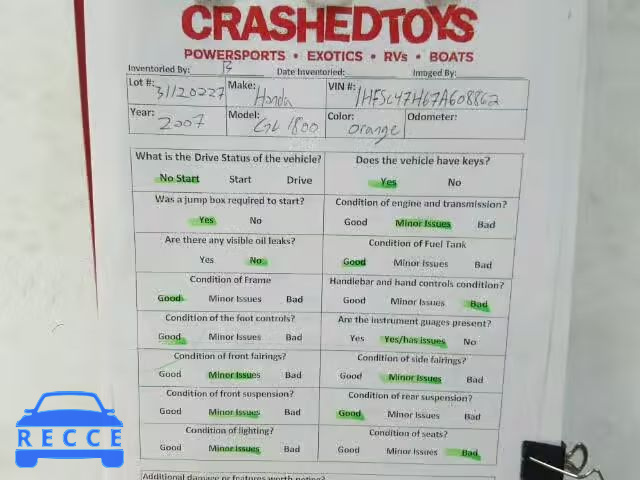 CRASHEDTOYS
POWERSPORTS • EXOTICS • RVs • BOATS
Inventoried By: B Date Inventoried: Imaged By:
Lot #: 31120227 Make: Honda VIN #: 1HFSC47H67A608862
Year: 2007 Model: GL 1800 Color: orange Odometer:
What is the Drive Status of the vehicle? Does the vehicle have keys?
No Start Start Drive Yes No
Was a jump box required to start? Condition of engine and transmission?
Yes No Good Minor Issues Bad
Are there any visible oil leaks? Condition of Fuel Tank
Yes No Good Minor Issues Bad
Condition of Frame Handlebar and hand controls condition?
Good Minor Issues Bad Good Minor Issues Bad
Condition of the foot controls? Are the instrument guages present?
Good Minor Issues Bad Yes Yes/has issues No
Condition of front fairings? Condition of side fairings?
Good Minor Issues Bad Good Minor Issues Bad
Condition of front suspension? Condition of rear suspension?
Good Minor Issues Bad Good Minor Issues Bad
Condition of lighting? Condition of seats?
Good Minor Issues Bad Good Minor Issues Bad
Additional damage or features worth noting?
RECCE